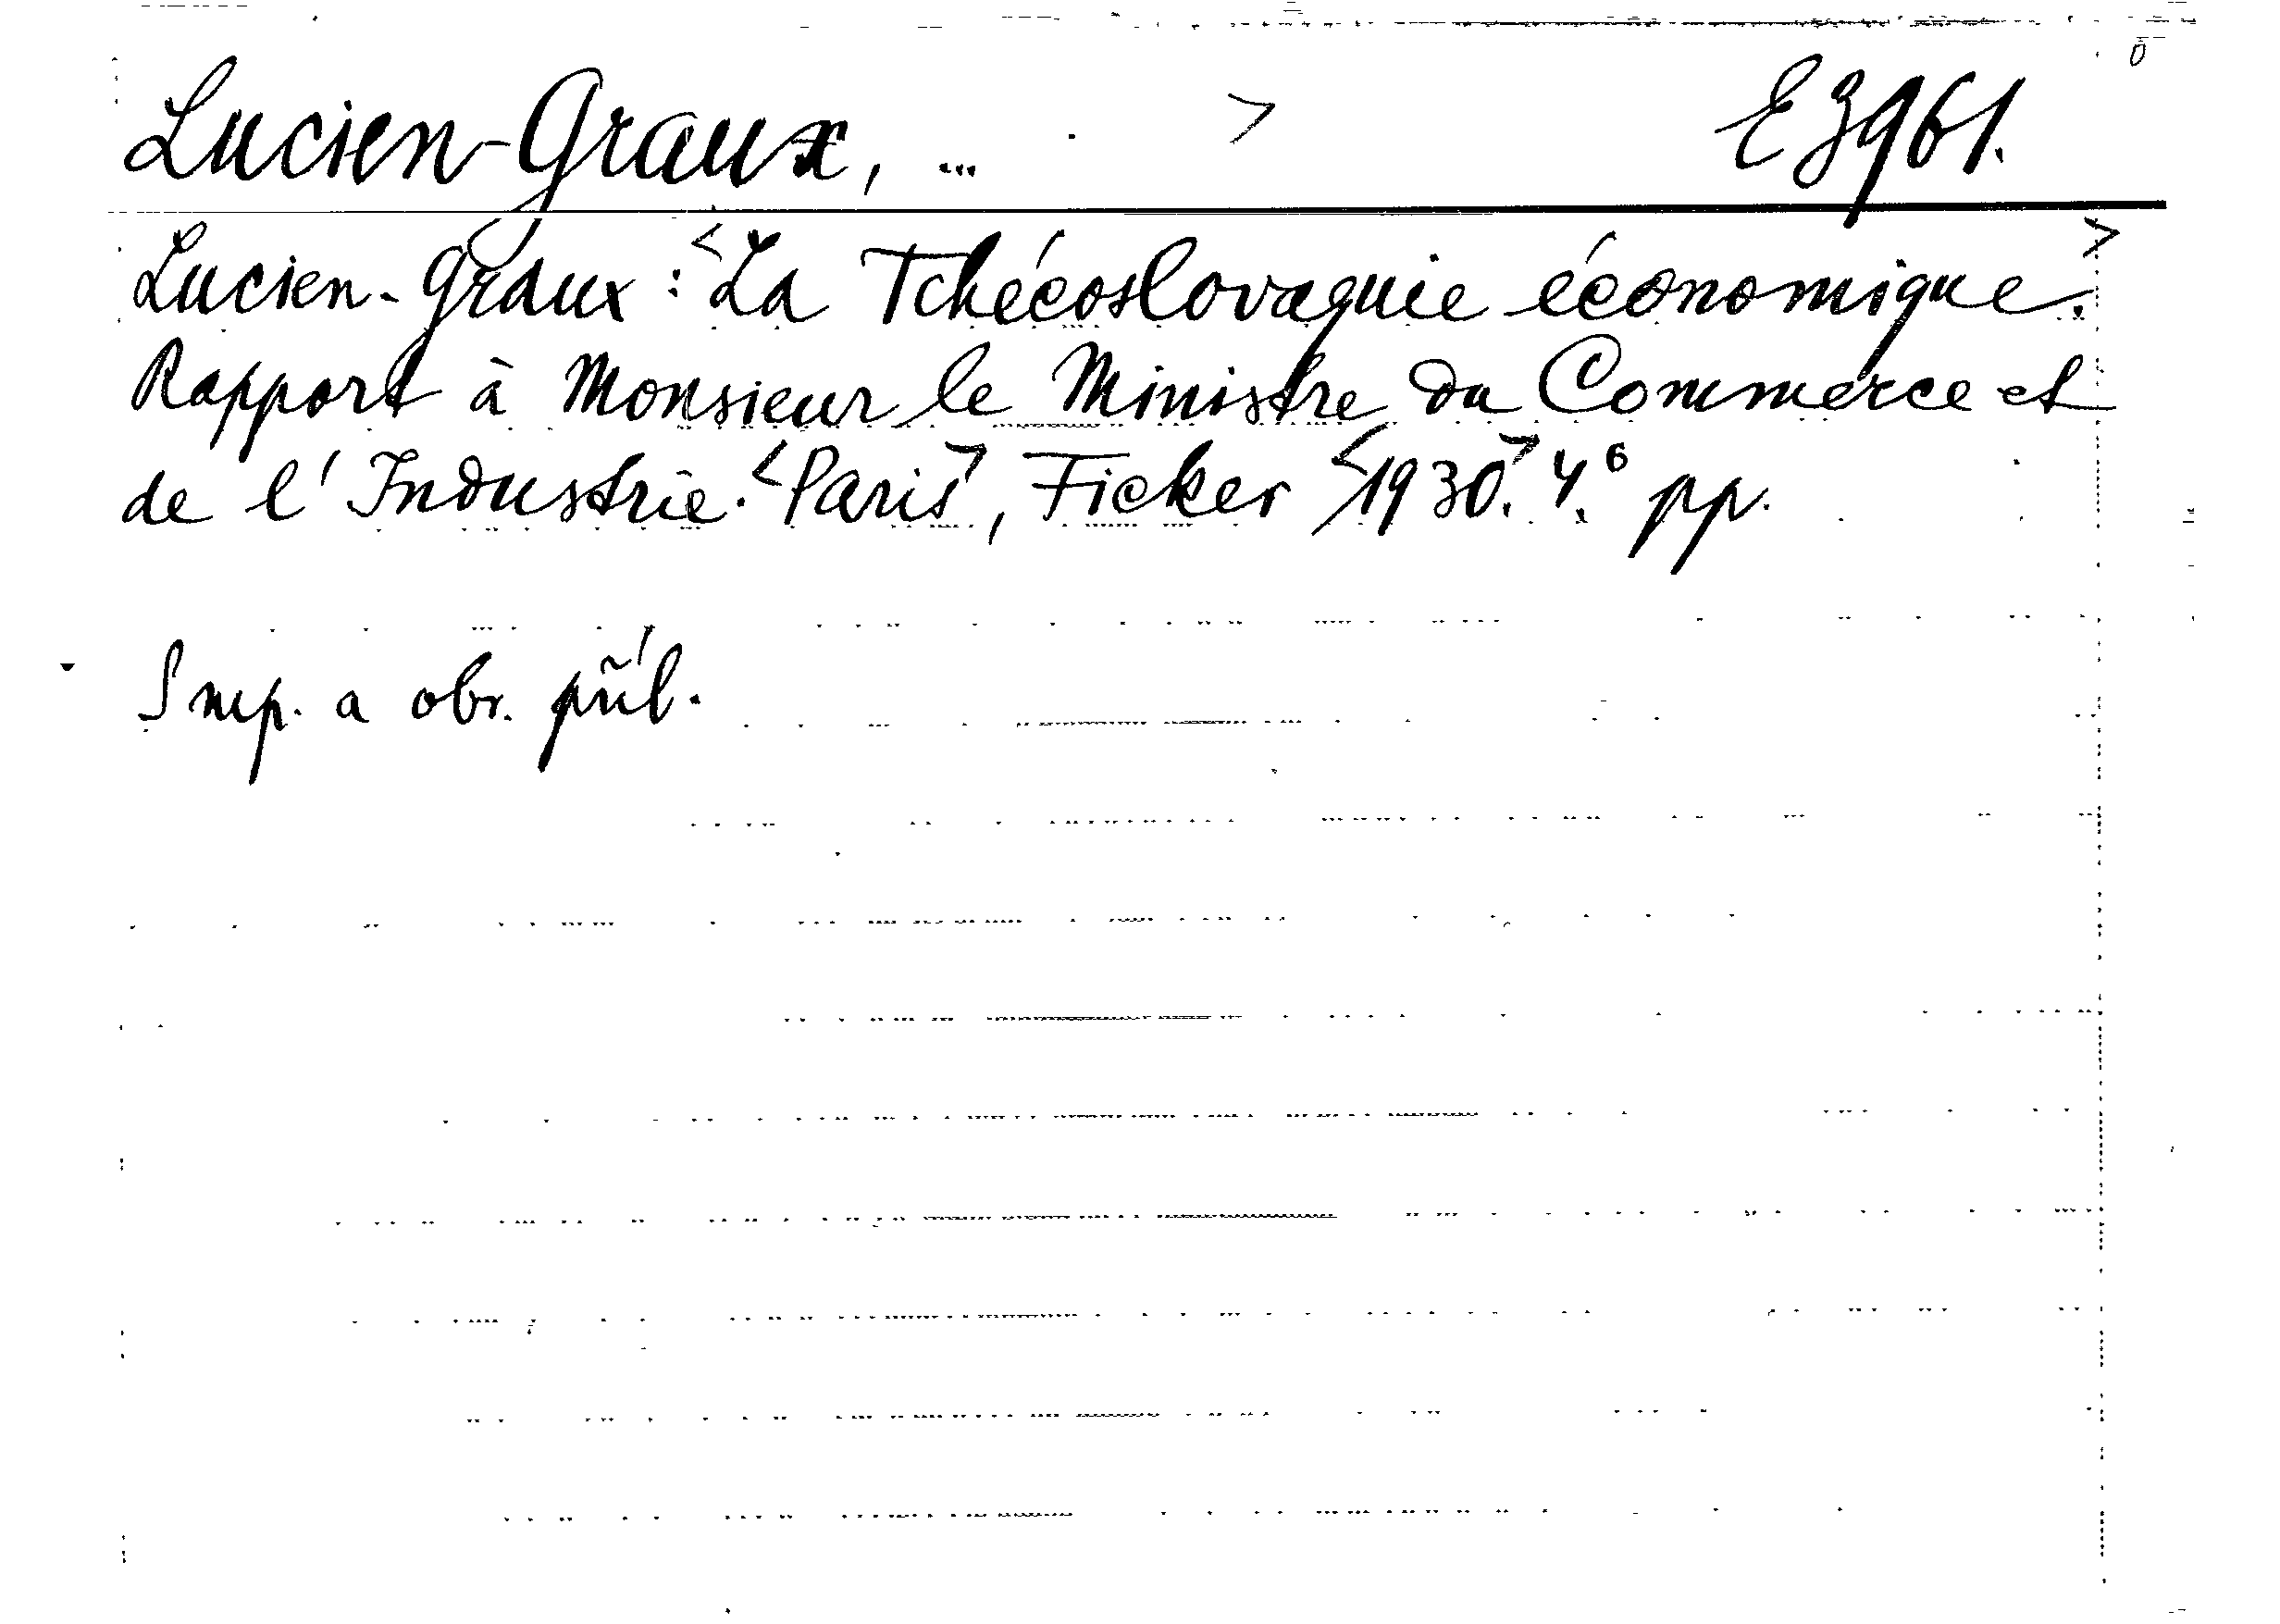 Lucien-Graux, ... > E 3961.
Lucien-Graux: <La Tchécoslovaquie économique.>
Rapport à Monsieur le Ministre du Commerce et
de l'Industrie. <Paris>, Ficker <1930.> 4.° pp.
S mp. a obr. příl.